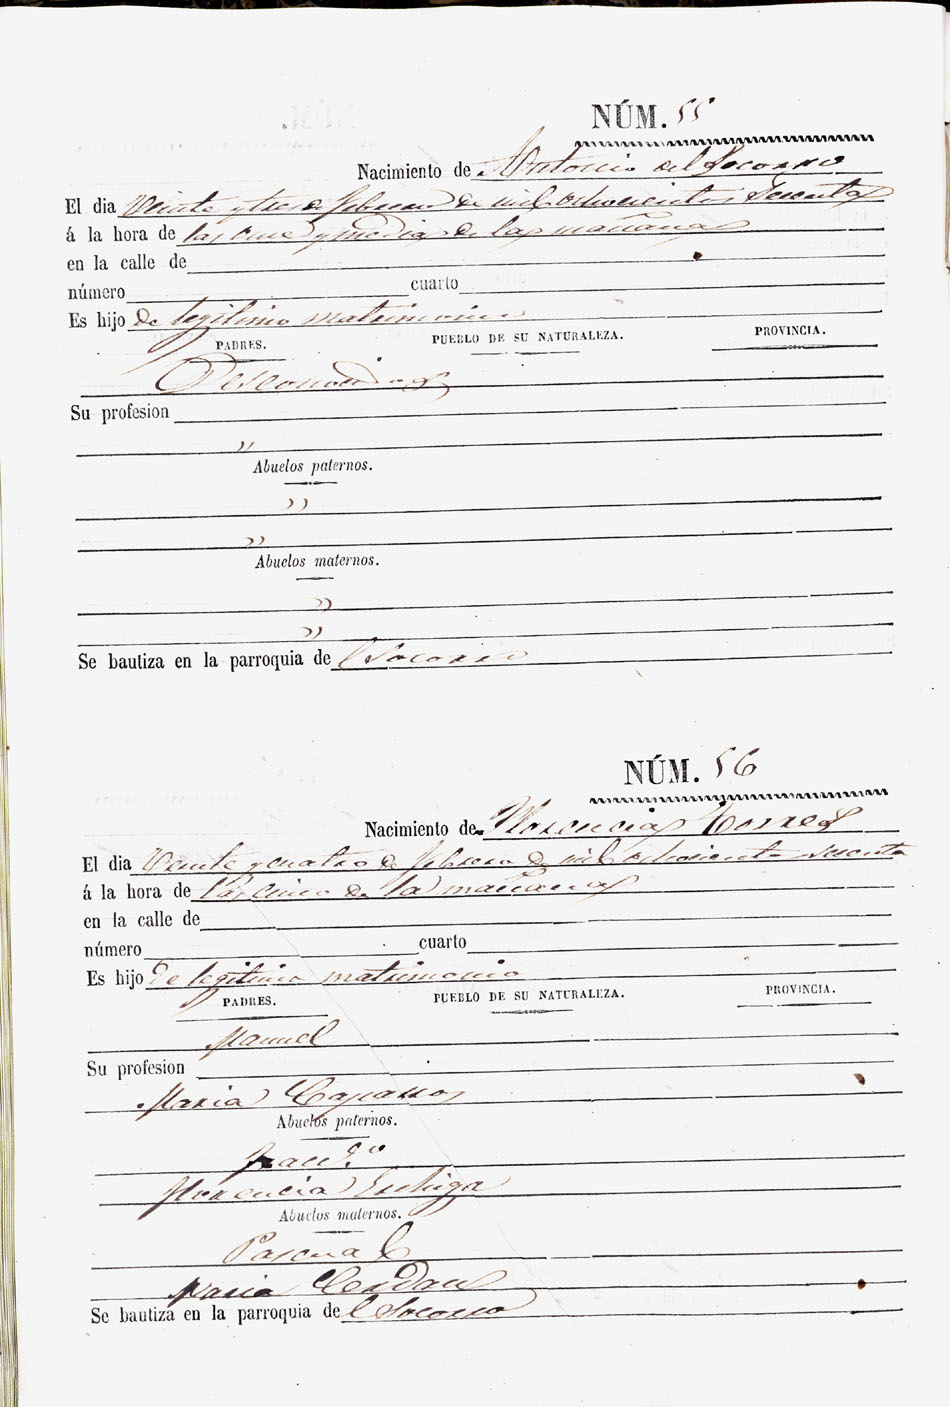 NÚM. 55
Nacimiento de Antonio del Socorro
El dia Veinte y tres de febrero de mil ochocientos Sesenta
á la hora de las once y media de la mañana
en la calle de
número cuarto
Es hijo de legitimo matrimonio
PADRES. PUEBLO DE SU NATURALEZA. PROVINCIA.
Desconocidos
Su profesion
"
Abuelos paternos.
"
"
Abuelos maternos.
"
"
Se bautiza en la parroquia de l Socorro
NÚM. 56
Nacimiento de Florencia Torres
El dia Veinte y cuatro de febrero de mil ochocientos sesenta
á la hora de las cinco de la mañana
en la calle de
número cuarto
Es hijo de legitimo matrimonio
PADRES. PUEBLO DE SU NATURALEZA. PROVINCIA.
Manuel
Su profesion
Maria
Abuelos paternos.
Franco.
Florencia
Abuelos maternos.
Pascual
Maria
Se bautiza en la parroquia de l Socorro